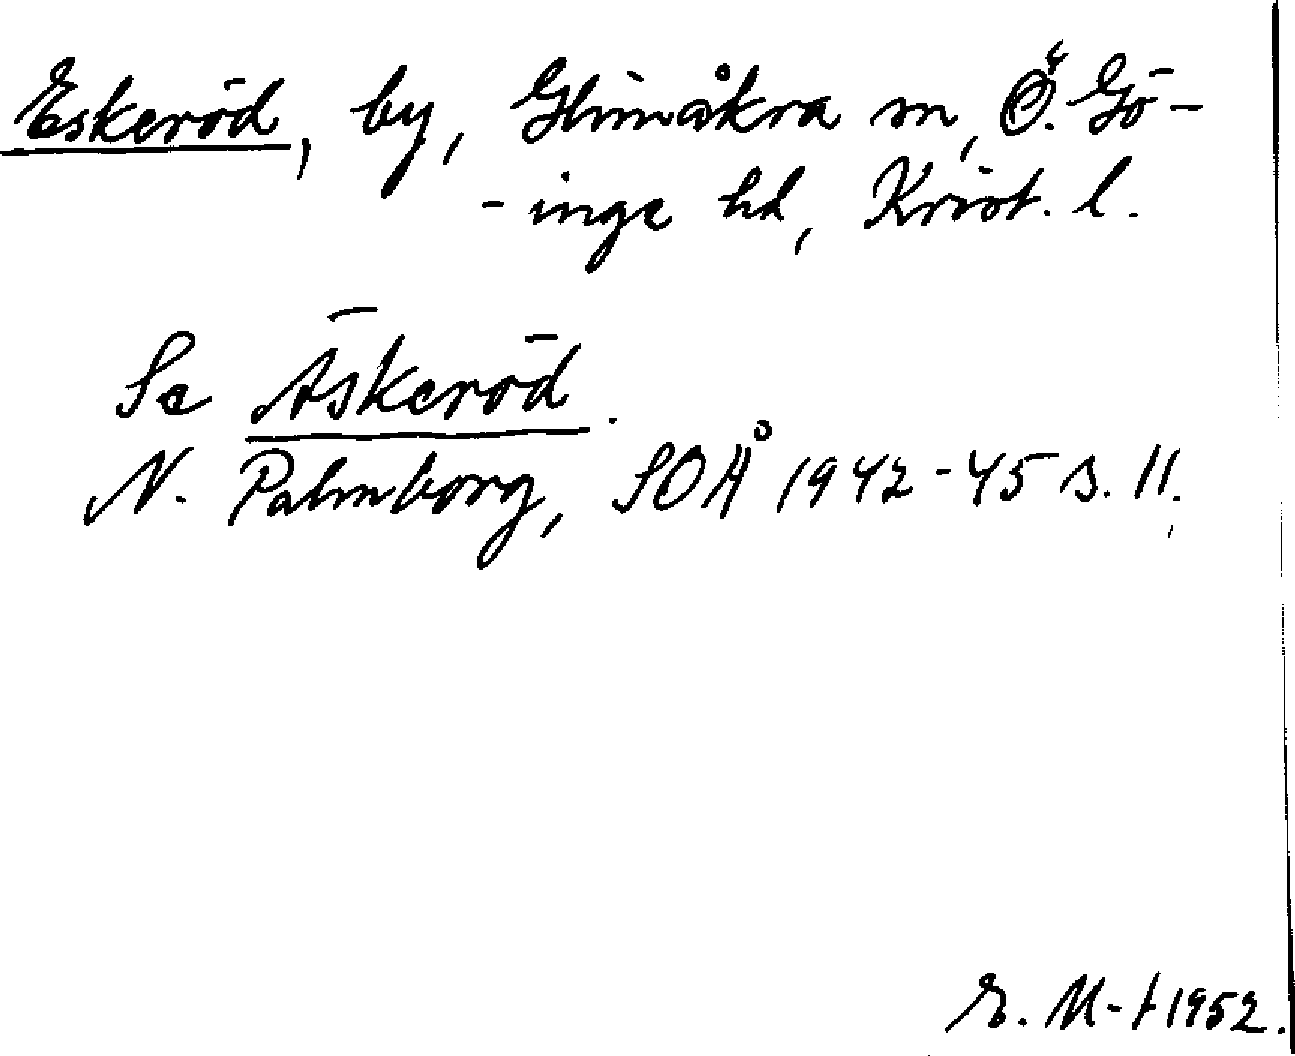 Eskeröd, by, Glimåkra sn, Ö. Gö-
-inge hd, Krist. l.
Se Äskeröd.
N. Palmborg, SOÅ 1942-45 s. 11.
E. M-t 1952.